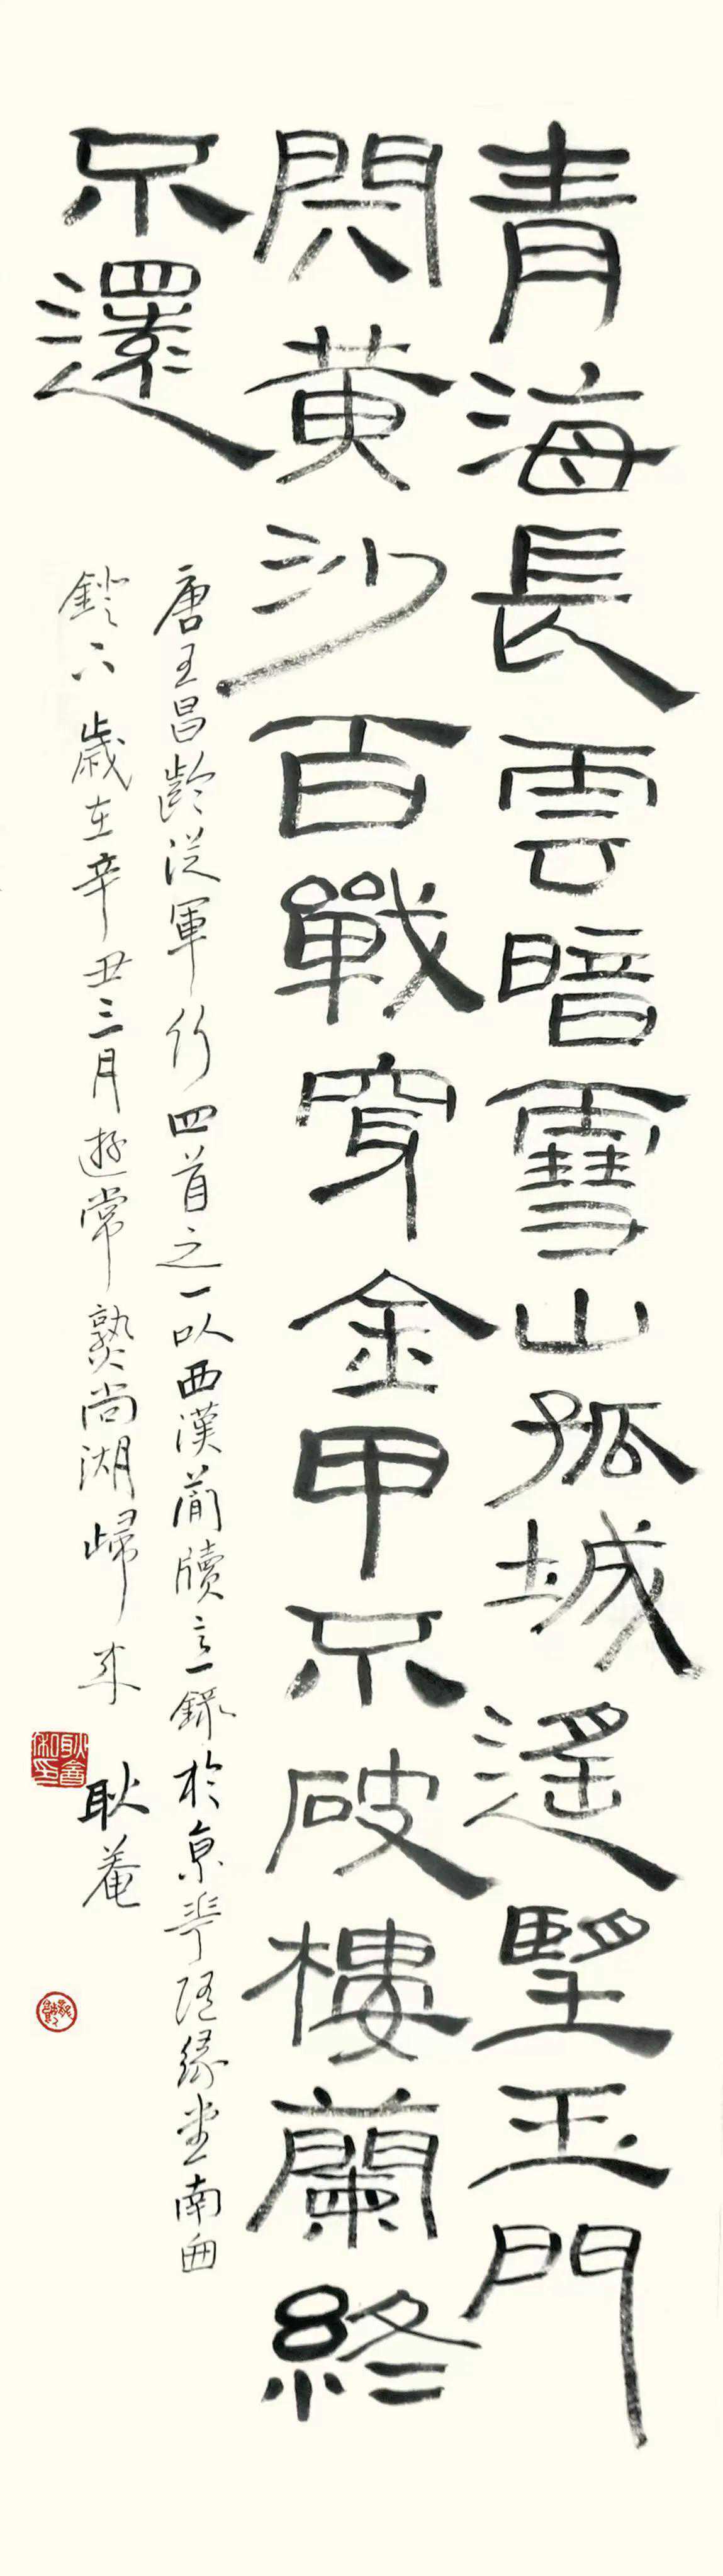 青海長雲暗雪山孤城遥望玉門
関黄沙百戰穿金甲不破樓蘭終
不還
唐王昌齡從軍行四首之一以西漢簡牘意録於京華隨緣堂南囱
鐙下歲在辛丑三月遊常熟尚湖歸來
耿菴